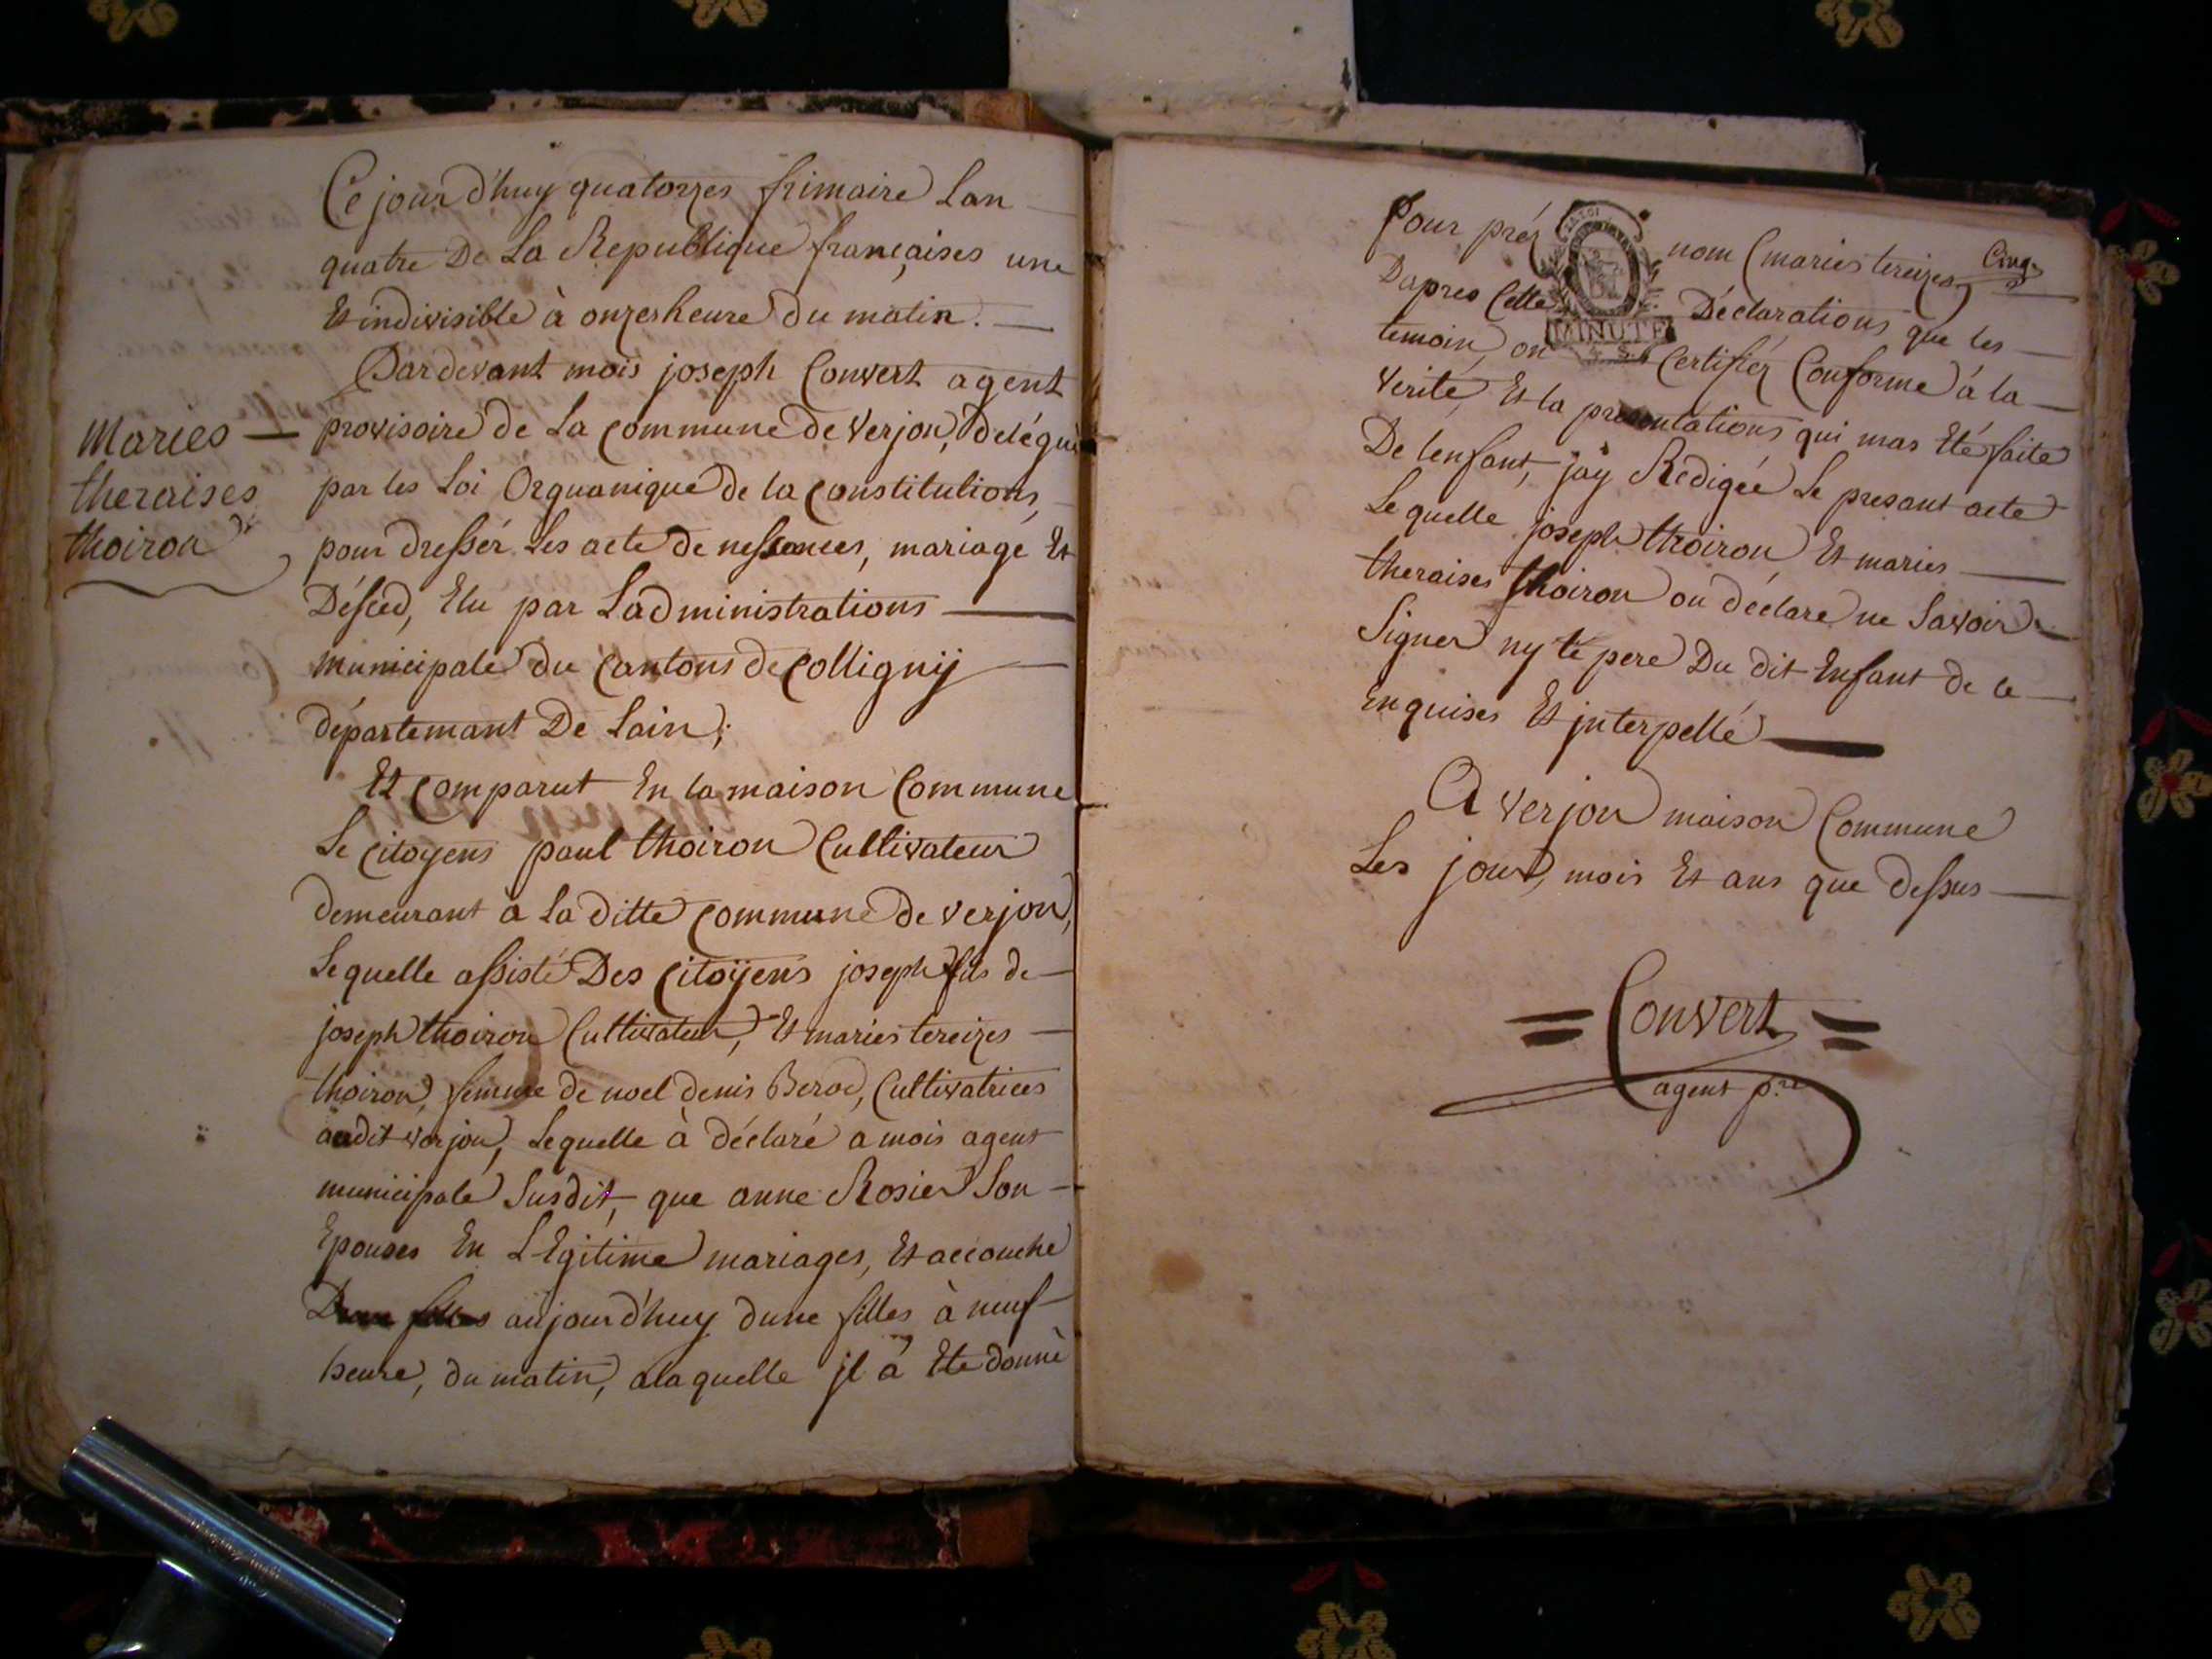 Maries —
theraises
thoiron
Ce jourd'huy quatorzes frimaire Lan
quatre De La Republique françaises une
Et indivisible à onzes heure du matin. —
Pardevant mois joseph Convert agent
provisoire de La Commune de Verjon, delégué
par les Loi Orguanique de la Constitutions,
pour dresser Les acte de nessances, mariage Et
Désced, Elu par Ladministrations —
municipale du Cantons de Collignÿ —
département De Lain;
Et Comparut En la maison Commune
Le Citoyens paul thoiron Cultivateur
demeurant a La ditte Commune de Verjon,
Lequelle assisté Des Citoÿens joseph fils de —
joseph thoiron Cultivateur, Et maries tereizes —
thoiron, femme de noel denis Berod, Cultivatrices
audit verjon, Lequelle à déclaré a mois agent
municipale Susdit, que anne Rosier Son —
Epouses En LEgitime mariages, Et accouché
aujourd'huy dune filles à neuf
heure, du matin, a laquelle jl à Eté donnè
Cinq
Pour pré nom (maries tereizes) —
MINUTE
Dapres Cette Déclarations que les —
temoin, on Certifiéz Conforme à la —
Verité, Et la presentations qui mas Eté faite
De lenfant, jay Redigée Le presant acte
Lequelle joseph thoiron Et maries —
theraises thoiron on déclaré ne Savoir —
Signer ny le pere Du dit Enfant de ce —
Enquises Et jnterpellé —
A verjon maison Commune
Les jour, mois Et ans que dessus —
= Convert =
agent p.re